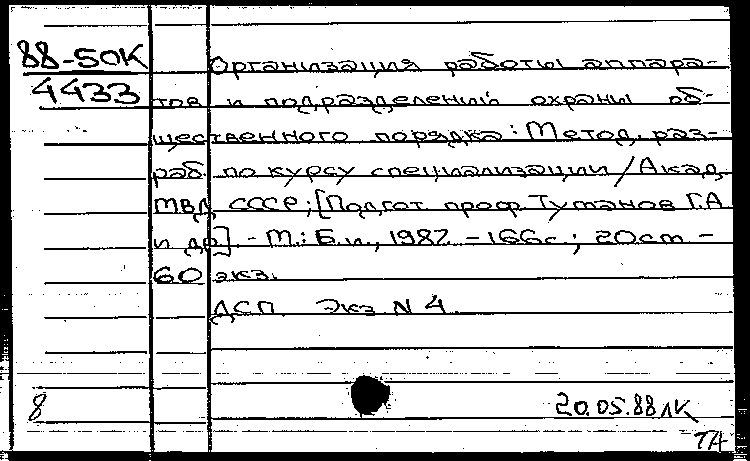 88-50К
4433
Организация работы аппара-
тов и подразделений охраны об-
щественного порядка: Метод. раз-
раб. по курсу специализации / Акад.
МВД СССР; [Подгот. проф. Туманов Г.А.
и др]. - М.: Б.и., 1987. - 166с.; 20см -
60 экз.
ДСП Экз N 4.
8
20.05.88 ЛК
ТА